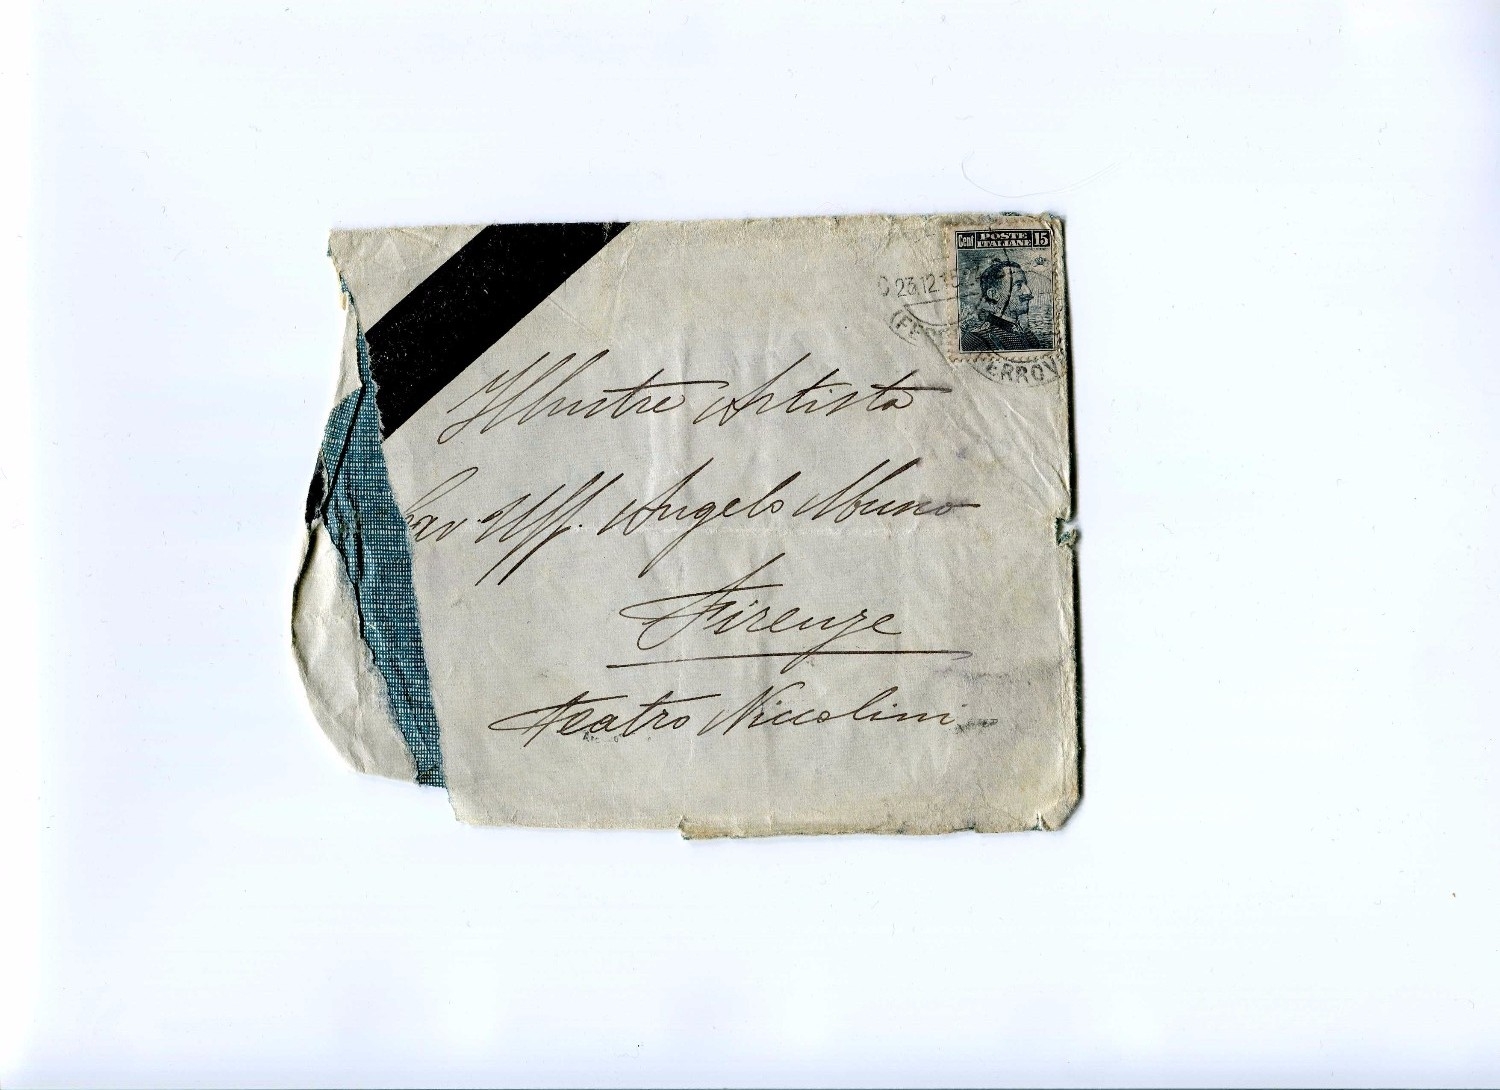 Cent POSTE ITALIANE 15
23.12.15
FERROV
Illustre Artista
Cav Uff. Angelo Musco
Firenze
Teatro Niccolini